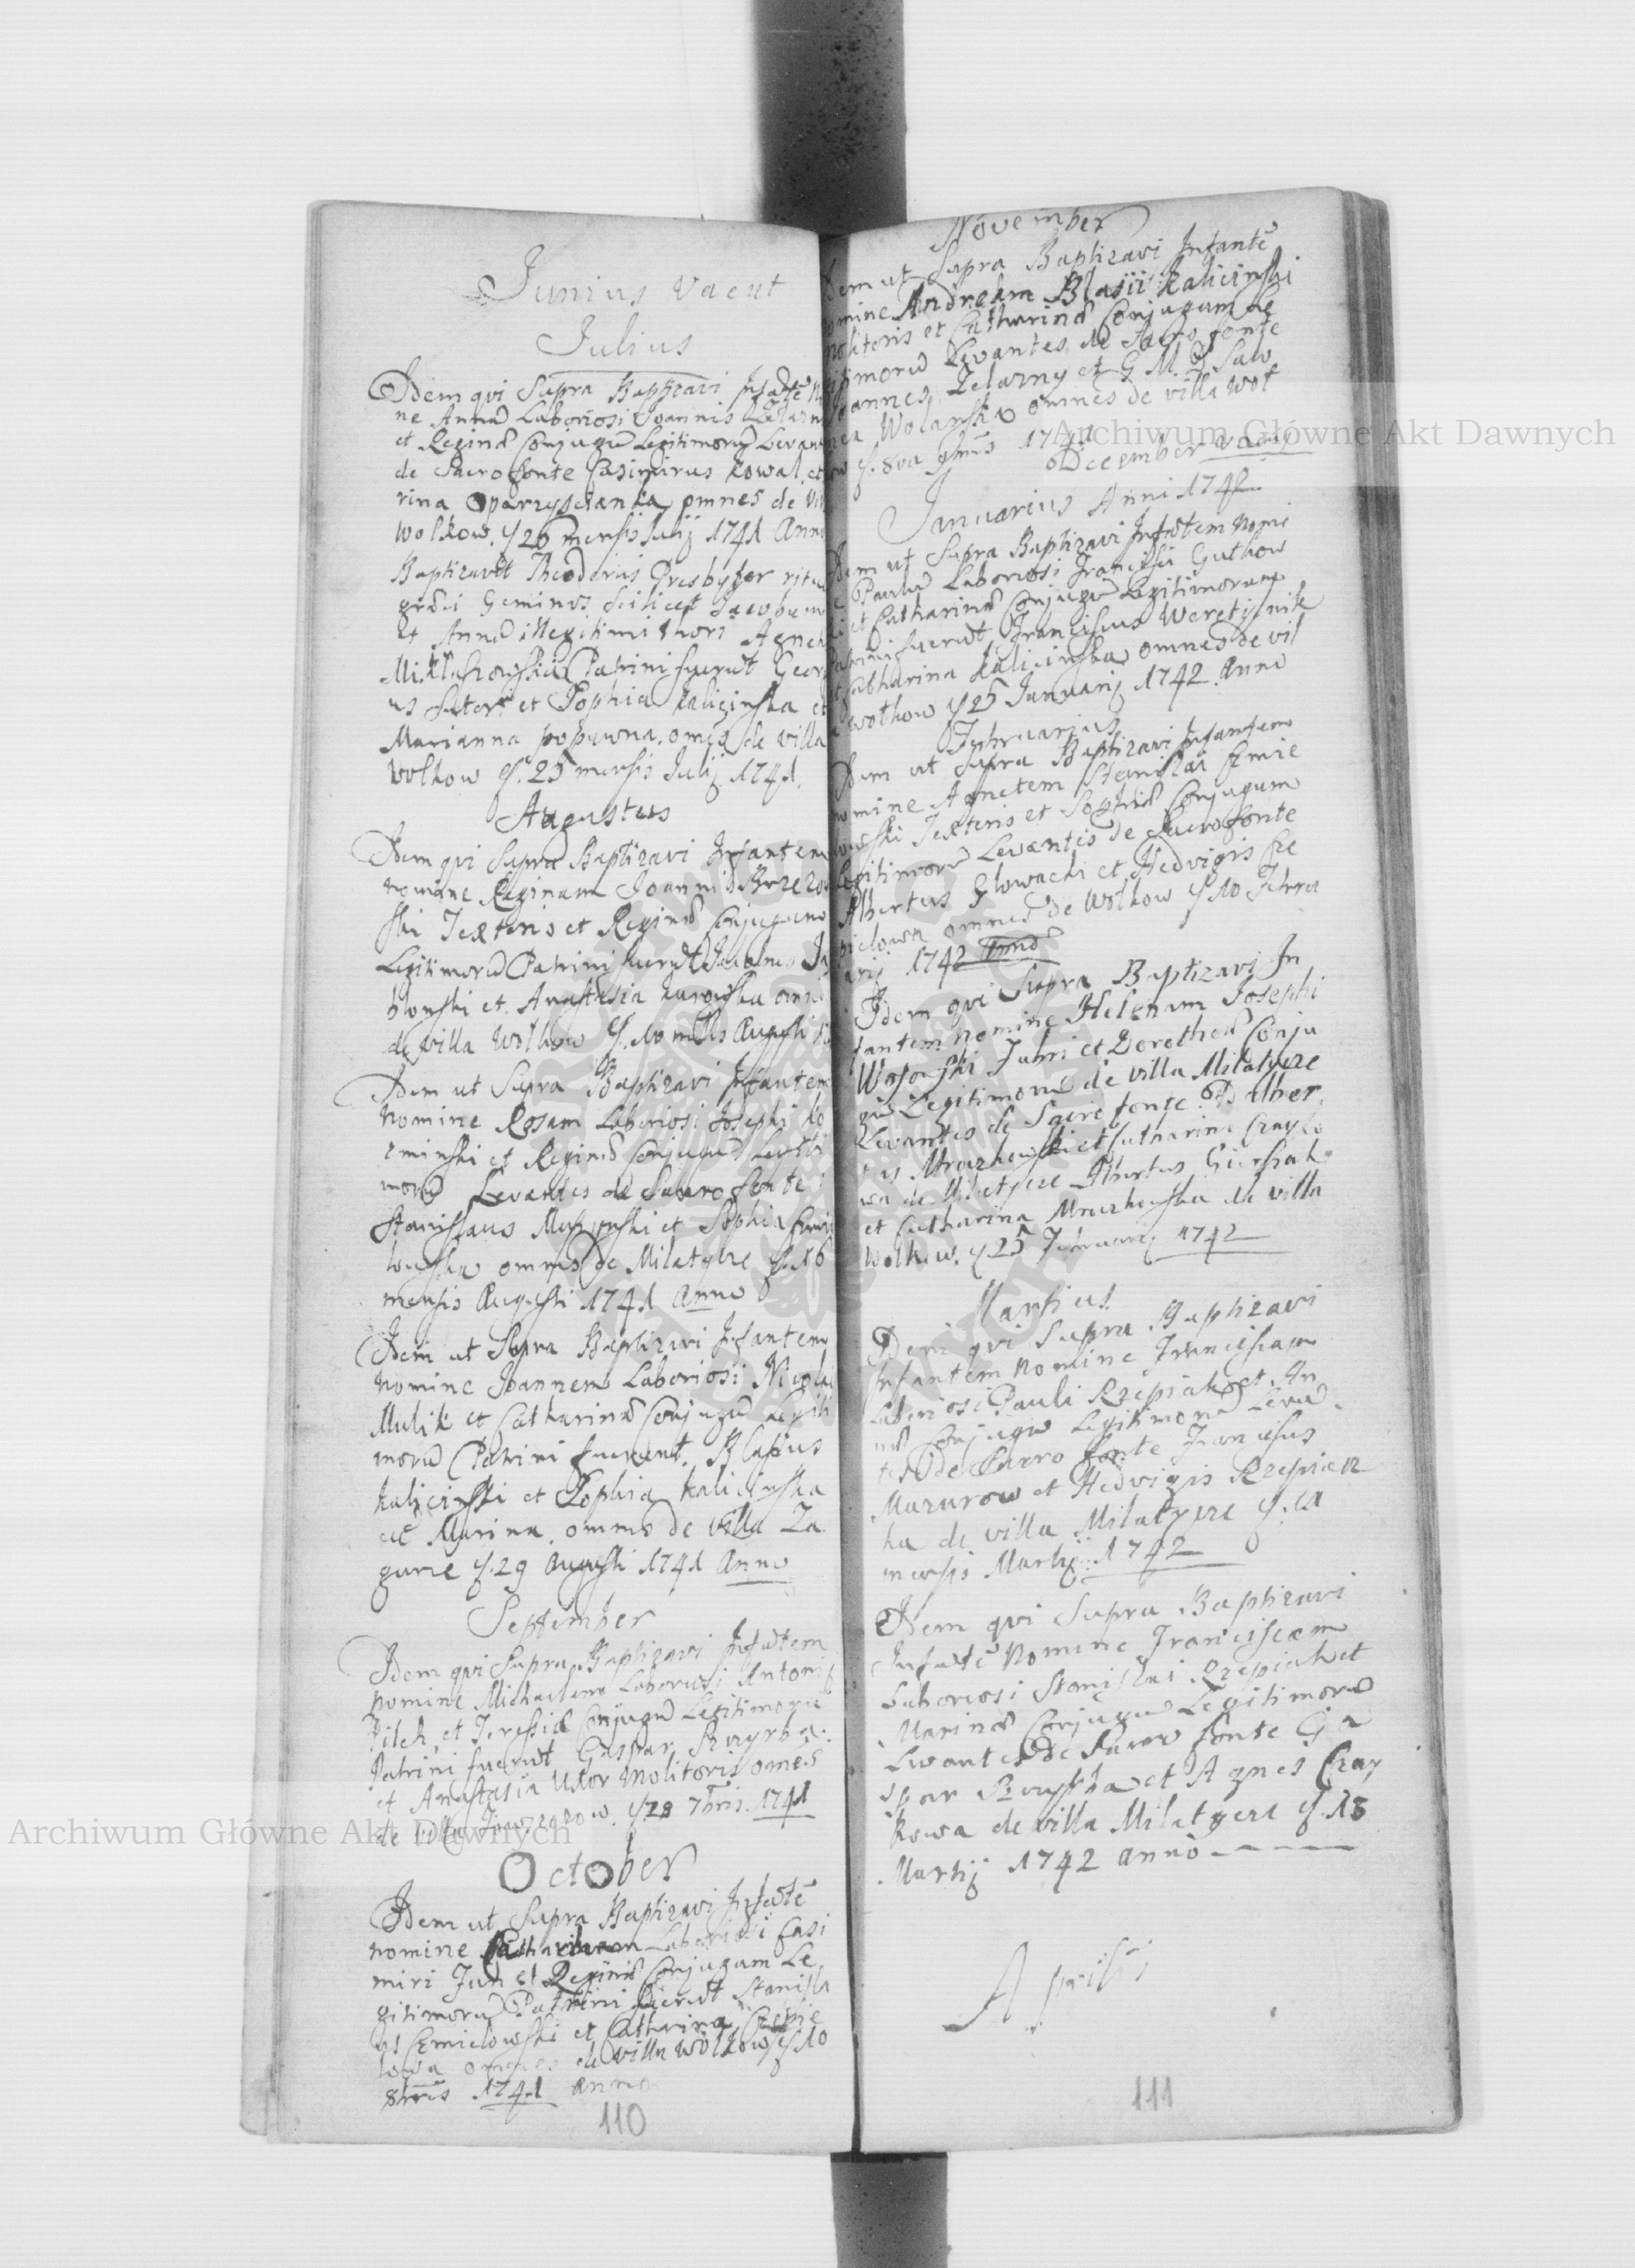 Junius Vacat
Julius
Idem qui Supra Baptizavi Infatē No
ne Annā Laboriosi Joannis Zelazn
et Reginæ Conjugū Legitimorū Levan
de Sacro fonte Casimirus Kowal, et
rina omnes de Vil
Wolkow. 26 mensis Julij 1741 Anno
Baptizavit Theodorus Presbyter ritus
græci Geminos Scilicet Jacobum
et Annā illegitimi thori Agnet
Patrini fuerūt Georgi
us Sutor et Sophia Kalicinska et
Marianna popuwna. omēs de villa
Wolkow 25 mensis Julij 1741.
Augustus
Idem qui Supra Baptizavi Infantem
nomine Reginam Joannis
ski Textoris et Reginæ Conjugum
Legitimorū Patrini fuerūt Ja
blonski et Anastasia omni
de villa Wolkow 10 mēsis Augusti
Idem ut Supra Baptizavi Infantem
Nomine Rosam Laboriosi Josephi Ko
zminski et Reginæ Conjugū Legiti
morū Levantes de Sacro fonte
Stanislaus et Sophia
omnes de Milatycze 16
mensis Augusti 1741 Anno
Idem ut Supra Baptizavi Infantem
nomine Joannem Laboriosi Nicolai
Mulik et Catharinæ Conjugū Legiti
morū Patrini fuerunt. Blasius
Kalicinski et Sophia Kalicinska
Marina. omnes de villa Za
gurze 29 Augusti 1741 Anno
September
Idem qui Supra Baptizavi Infatem
nomine Michaelem Laboriosi Antonij
Pilch, et Teressiæ Conjugū Legitimorū
Patrini fuerūt Gaspar
et Anastasia Uxor Molitoris omēs
de villa 28 7bris. 1741
October
Idem ut Supra Baptizavi Infātē
nomine Laboriosi Casi
miri Jun et Reginæ Conjugum Le
gitimorū Patrini fuerūt Stanisla
us Cmielowski et Catharina Czepie
lowa omnes de villa Wolkow 10
8bris 1741 anno
110
November
Idem ut Supra Baptizavi Infantē
omine Andream Blasii Kalicinski
molitoris et Catharinæ Conjugum Le
gitimorū Levantes de Sacro fonte
Joannes Zelazny et G M D Salo
mea Wolanska omnes de villa Wol
kow 8va 9bris 1741
December vacat
Januarius Anni 1742
Idem ut Supra Baptizavi Infātem Nomi
e Paulū Laboriosi Francisci Gutkow
et Catharinæ Conjugū Legitimorum
Patrini fuerūt Franciscus
et Catharina Kalicinska omnes de vil
a Wolkow 25 Januarij 1742 Anno
Februarius
Idem ut Supra Baptizavi Infantem
nomine Agnetem Stanislai Cmie
lowski Textoris et Sophiæ Conjugum
Legitimorū Levantes de Sacro fonte
Albertus Glowacki et Hedvigis Cze
pielowa omnes de Wolkow 10 Februa
arij 1742 Anno
Idem qui Supra Baptizavi In
fantem nomine Helenam Josephi
Wosowski Fabri et Dorotheæ Conju
gū Legitimorū de villa Milatycze
Levantes de Sacro fonte Alber
tus Mroczkowski et Catharina Czayko
wa de Milatycze Albertus
et Catharina Mroczkowska de villa
Wolkow. 25 Februarij 1742
Martius.
Idem qui Supra Baptizavi
Infantem nomine Franciscam
Laboriosi Pauli Rzepiak et An
næ Conjugū Legitimorū Levā
tes de Sacro fonte Franciscus
Mazurow et Hedvigis Rzepian
ka de villa Milatycze
mensis Martij 1742
Idem qui Supra Baptizavi
Infatē Nomine Franciscam
Laboriosi Stanislai Rzepiak et
Marinæ Conjugū Legitimorū
Levantes de Sacro fonte Ga
spar et Agnes Czay
kowa de villa Milatycze 18
Martij 1742 anno
Aprilis
111
Archiwum Główne Akt Dawnych
Archiwum Główne Akt Dawnych